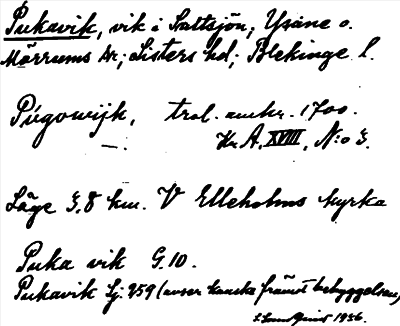 Pukavik, vik i Saltsjön, Ysane o.
Mörrums sn; Listers hd; Blekinge l.
Púgowijk, trol. omkr. 1700.
Kr. A. XVIII, N:o 3.
Läge 3,8 km. V Elleholms kyrka
Puka vik G.10.
Pukavik Lj. 259 (avser kanske främst bebyggelsen)
1936.